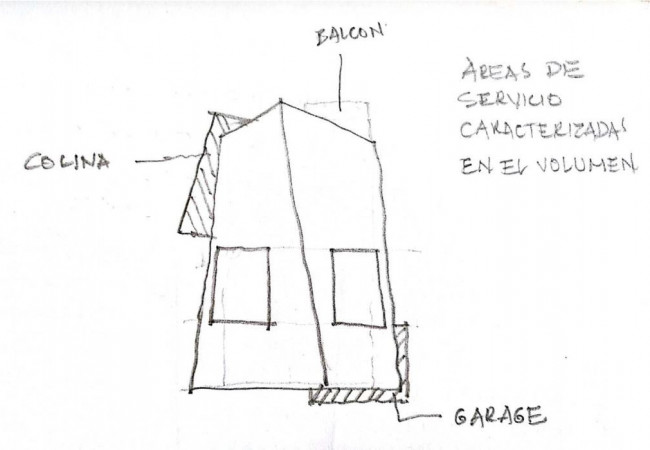 BALCON
AREAS DE
SERVICIO
CARACTERIZADAS
EN EL VOLUMEN
COLINA
GARAGE